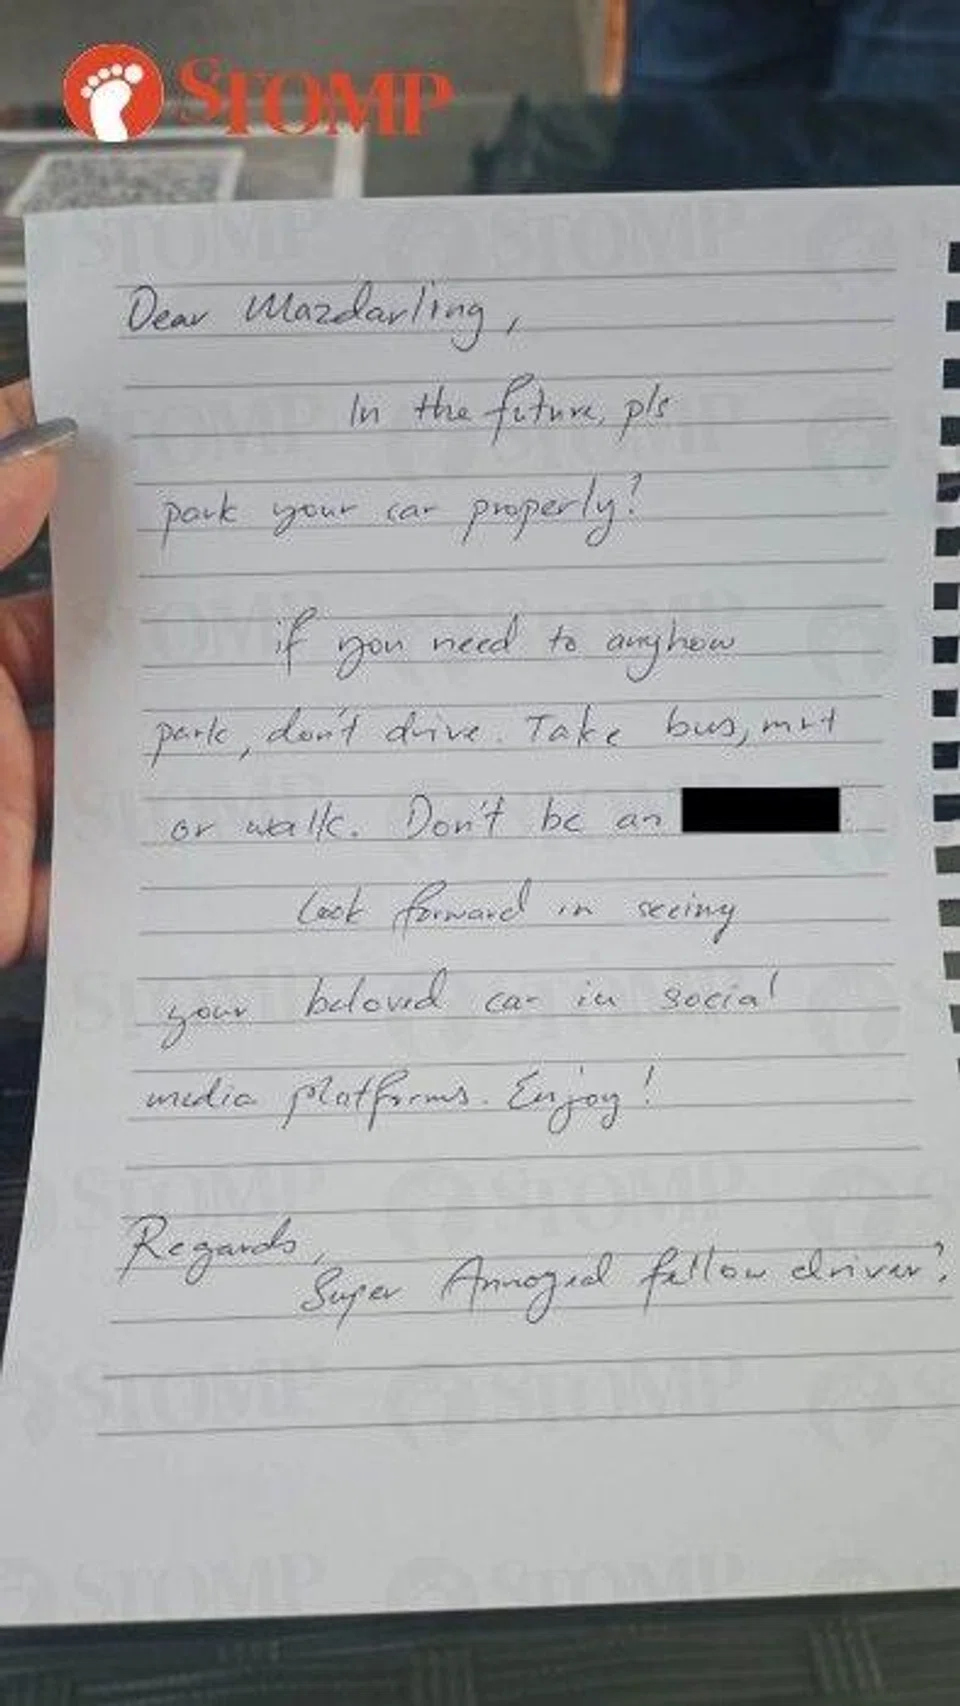 STOMP
Dear Mazdarling,
In the future, pls
park your car properly?
if you need to anyhow
park, don't drive. Take bus, mrt
or walk. Don't be an
Look forward in seeing
your beloved car in social
media platforms. Enjoy!
Regards,
Super Annoyed fellow driver?